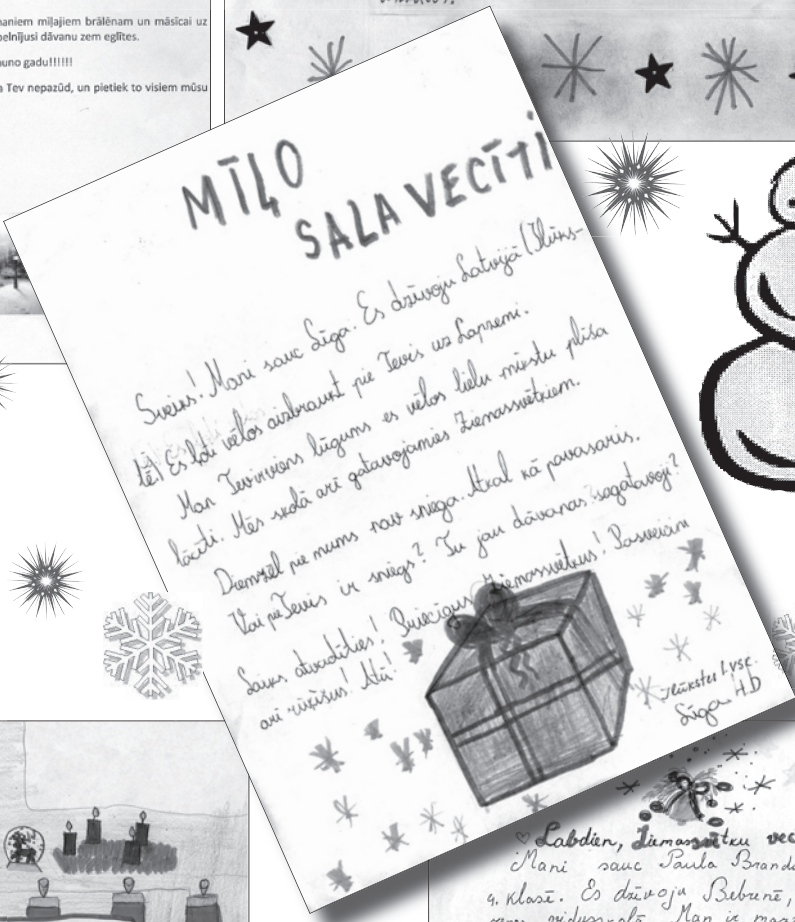 aniem mīļajiem brālēnam un māsīcai uz
pelnījusi dāvanu zem eglītes.
auno gadu!!!!!!
a Tev nepazūd, un pietiek to visiem mūsu
MĪĻO
SALAVECĪTI
Sveiks! Mani sauc Līga. Es dzīvoju Latvijā (Ilūks-
tē) Es ļoti vēlos aizbraukt pie Tevis uz Lapzemi.
Man Tevirviens lūgums es vēlos lielu mīkstu plīša
lācīti. Mēs skolā arī gatavojamies Ziemassvētkiem.
Diemžēl pie mums nav sniega. Atkal kā pavasaris.
Vai pieTevis ir sniegs? Tu jau dāvanas sagatavoji?
Laiks atvadīties! Priecīgus Ziemassvētkus! Pasveicini
arī rūķīšus! Atā!
Ilūkstes 1.vsk.
Līga 4.D
Labdien, Ziemassvētku vec
Mani sauc Paula Brand
9. klasē. Es dzīvoju Bebrenē,
vidusskolā. Man ir